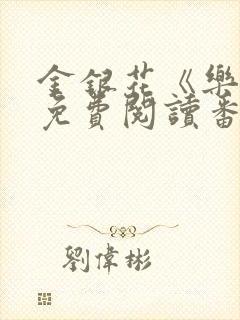 金銀花《樂
免費閱讀番
劉偉彬